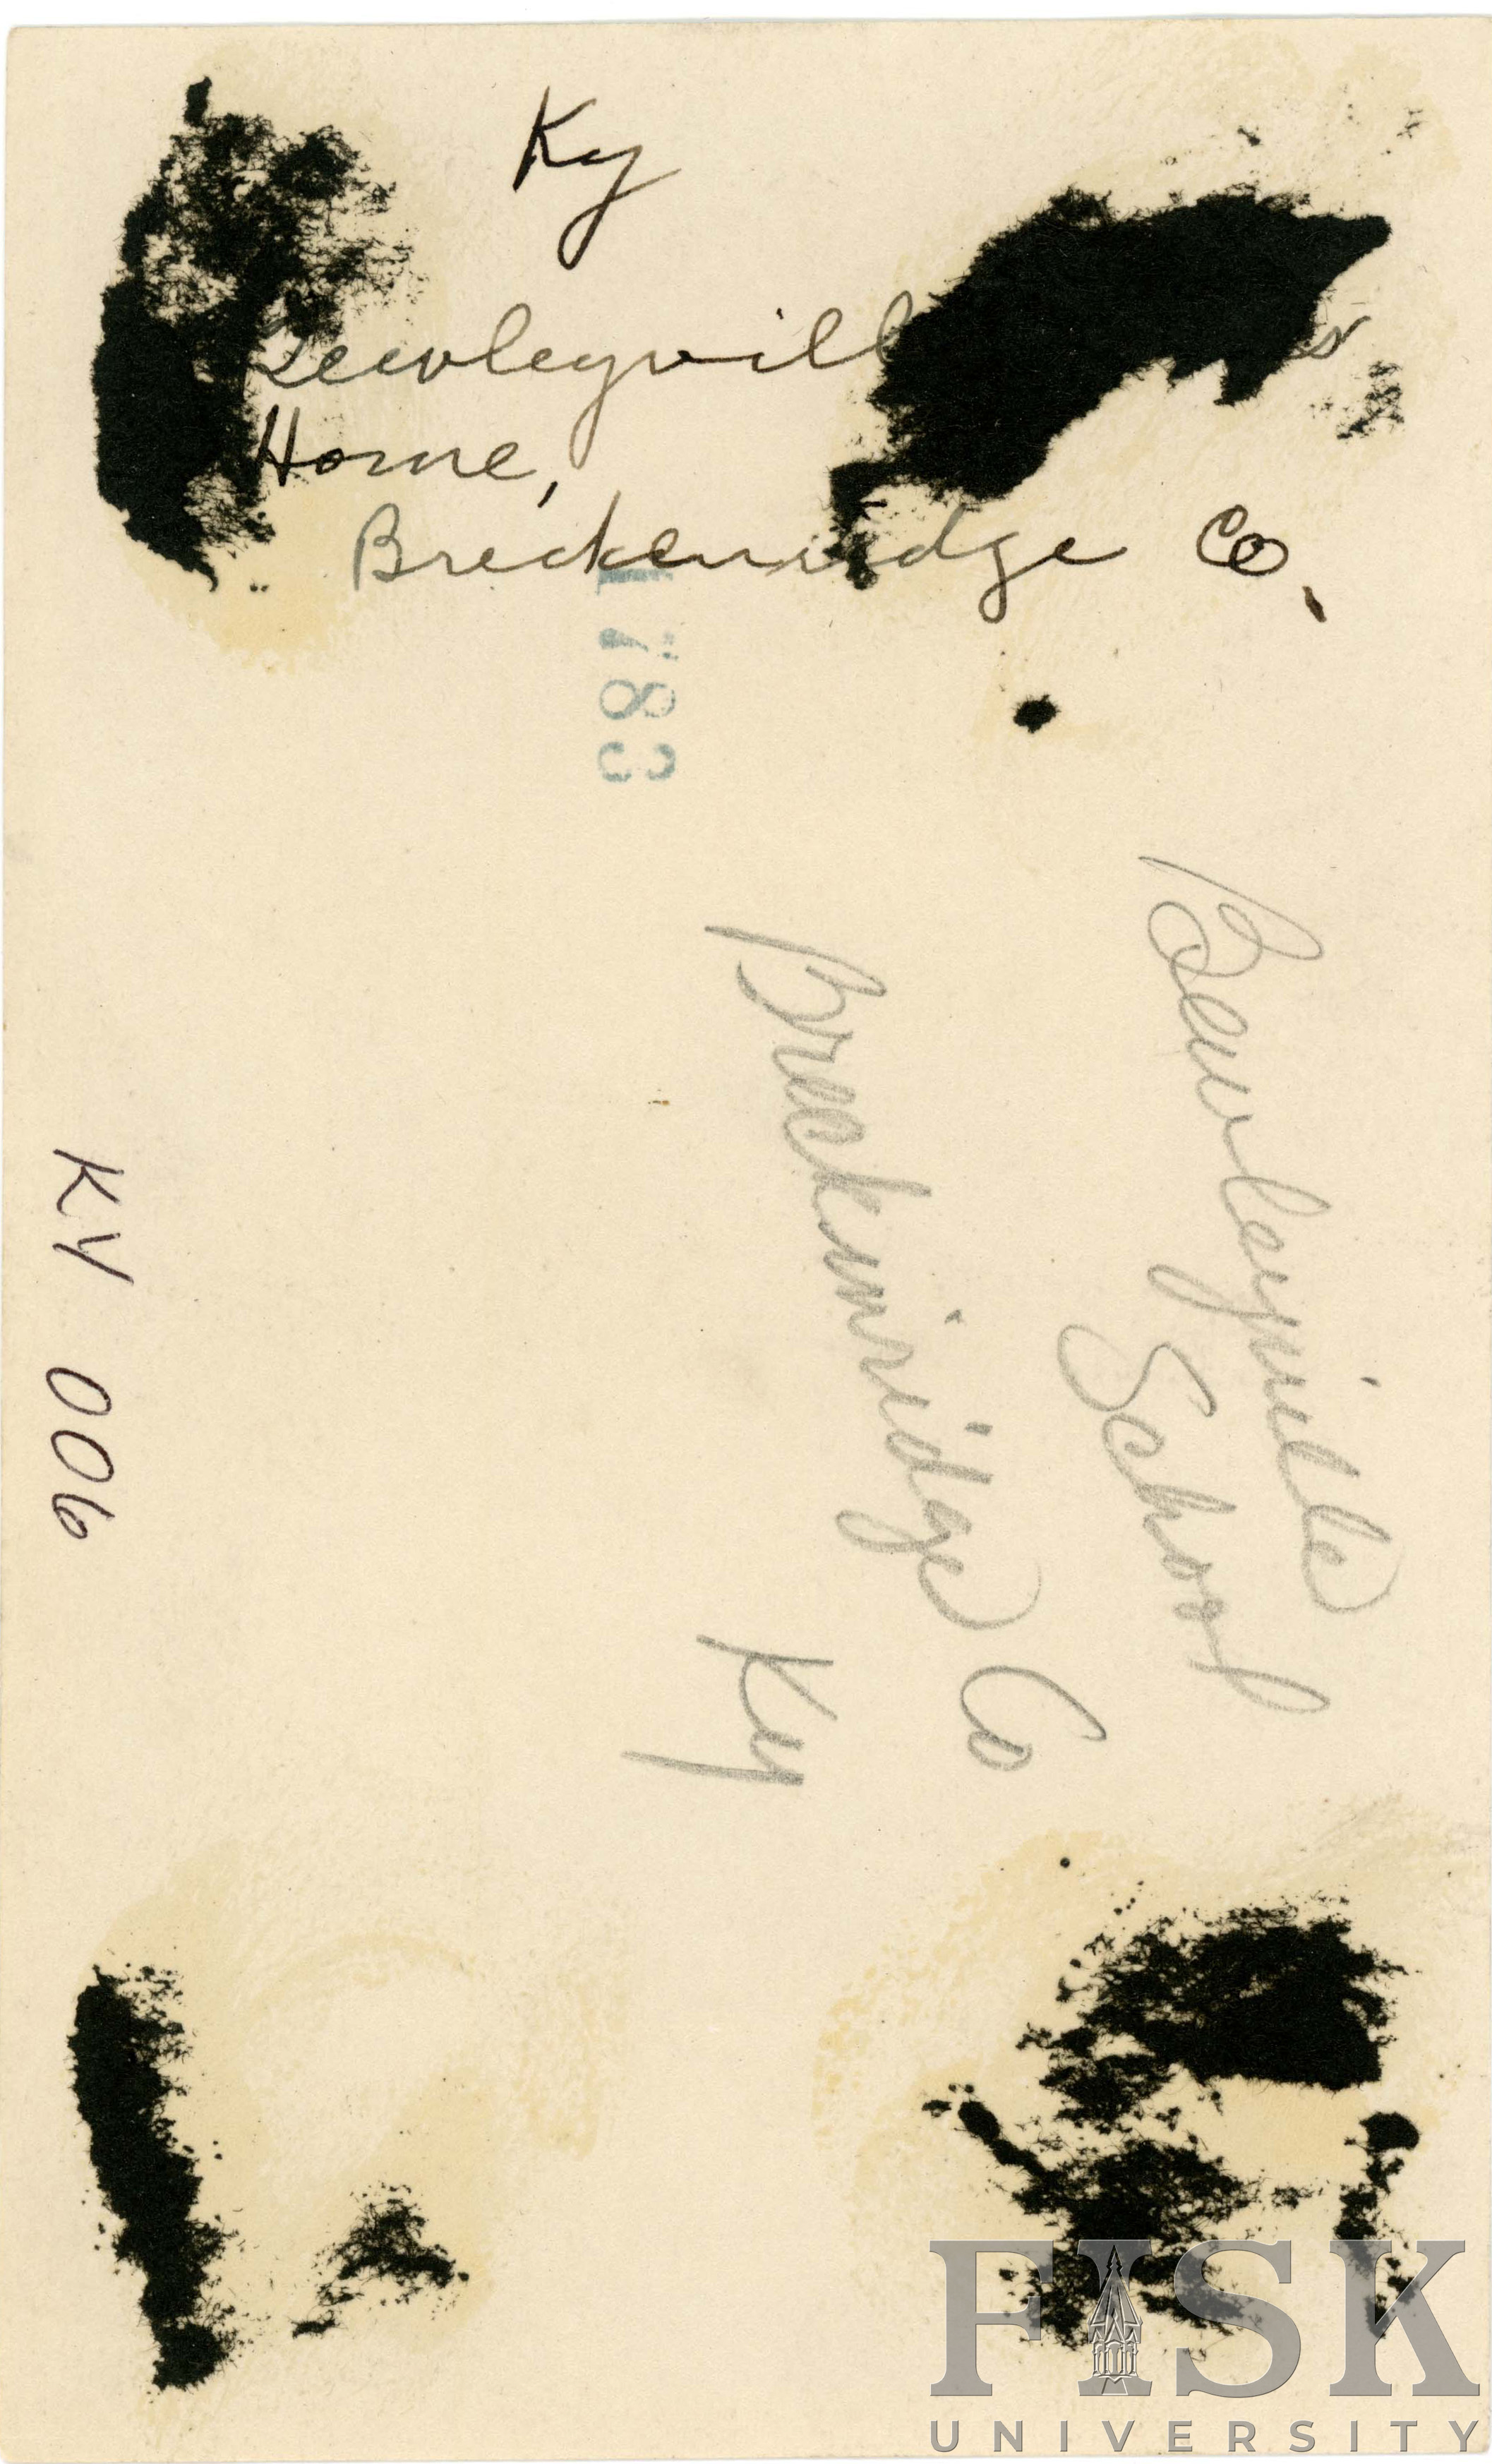 Ky
Home,
Breckenridge Co.
1783
Bewleyville
School
Breckinridge Co
Ky
KY 006
FISK
UNIVERSITY